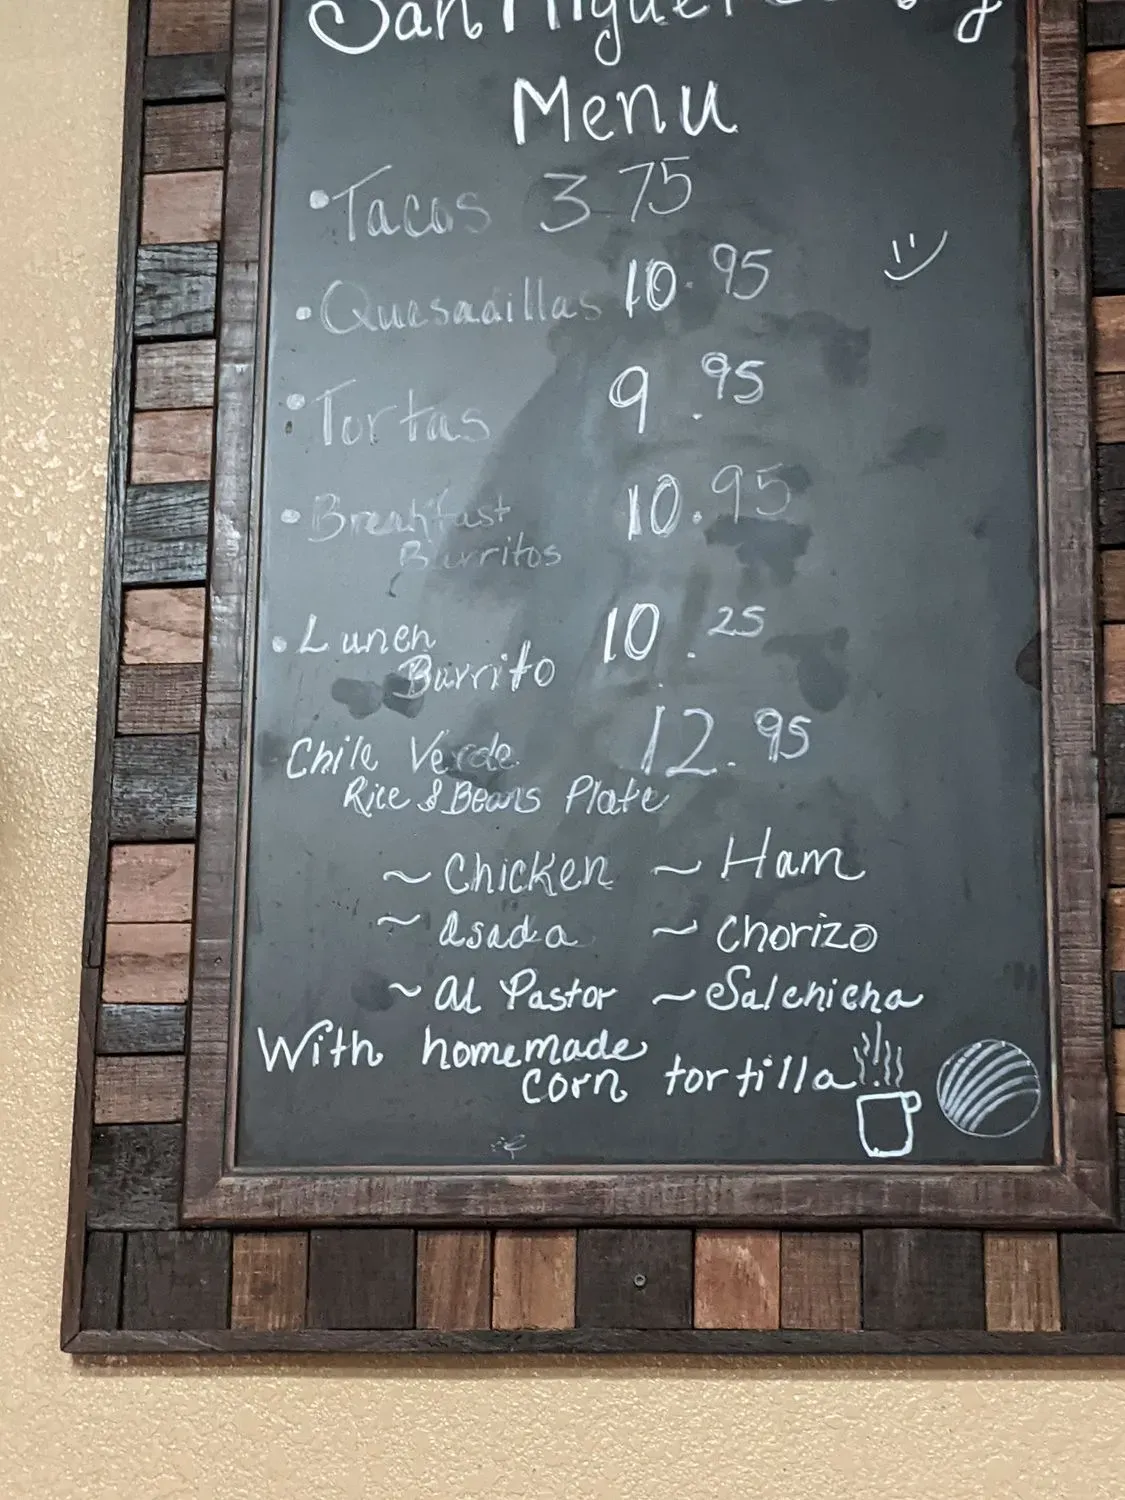 San Miguel
Menu
• Tacos 3 75
• Quesadillas 10.95
• Tortas 9.95
• Breakfast 10.95
Burritos
• Lunch 10.25
Burrito
Chile Verde 12.95
Rice & Beans Plate
~ Chicken ~ Ham
~ Asada ~ Chorizo
~ Al Pastor ~ Salchicha
With homemade
corn tortilla